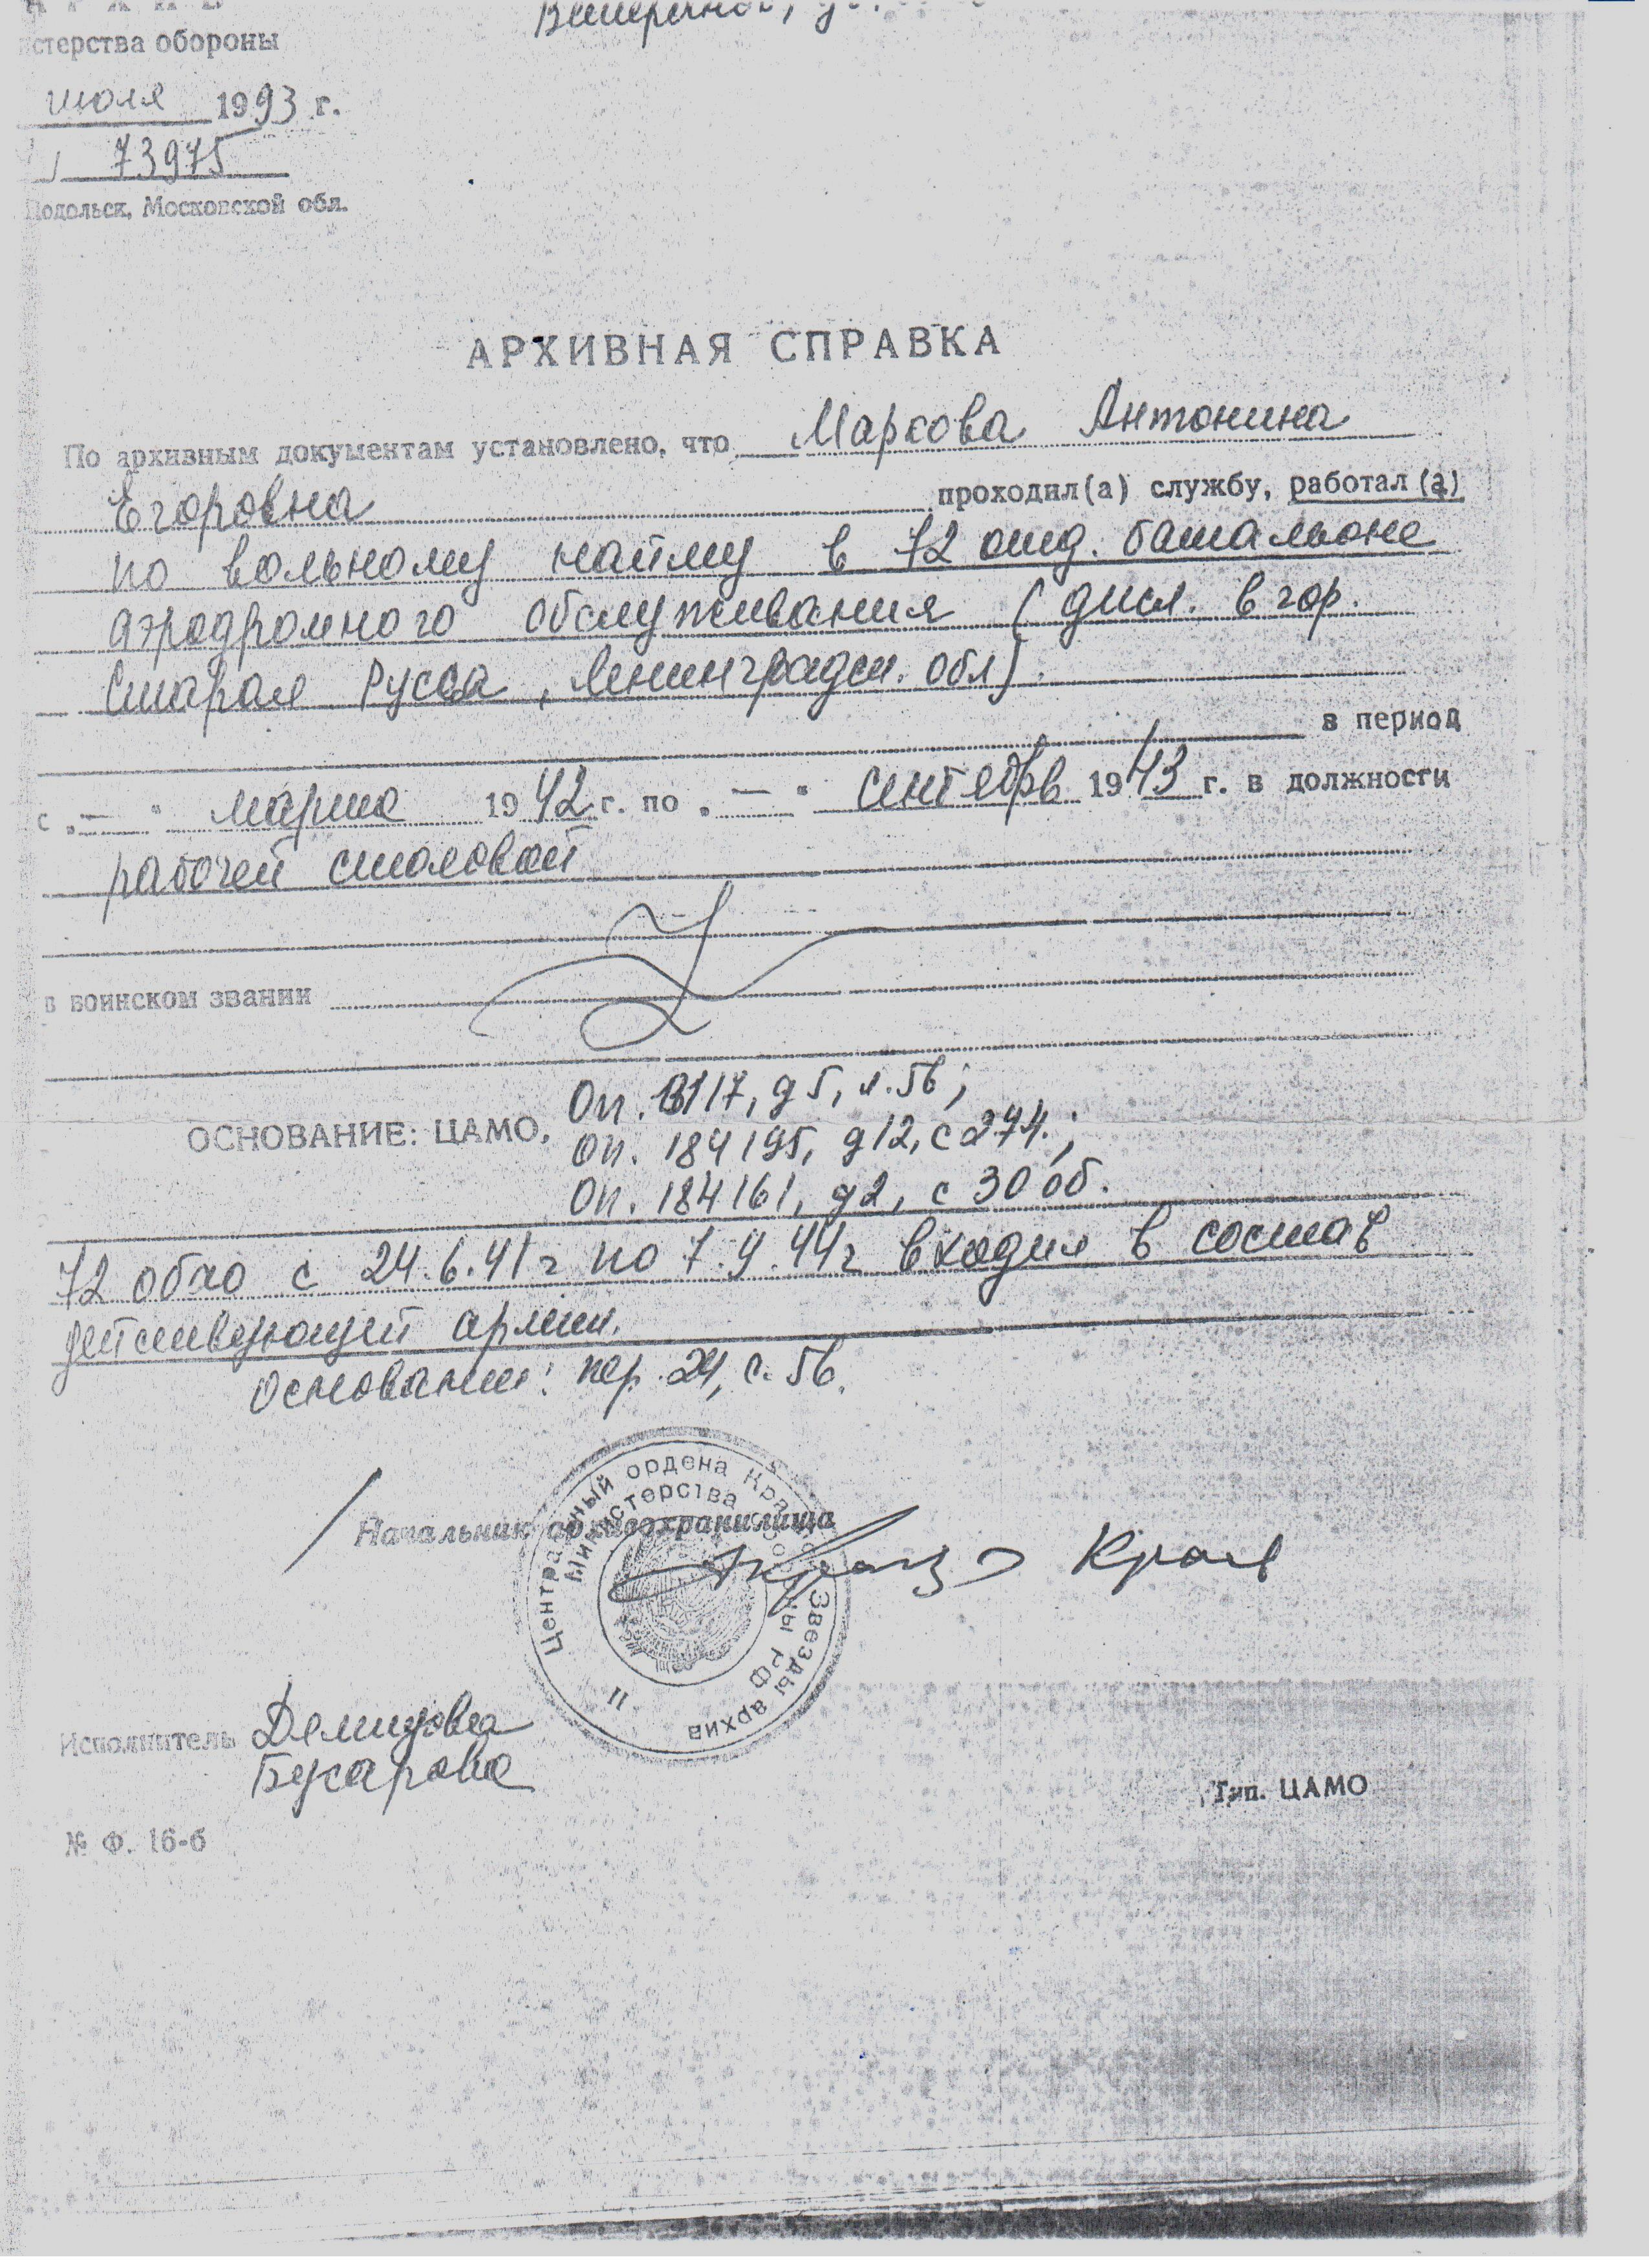 АРХИВ
стерства обороны
июля 1993 г.
73975
Подольск, Московской обл.
АРХИВНАЯ СПРАВКА
По архивным документам установлено, что Марсова Антонина
Егоровна проходил(а) службу, работал(а)
по вольному найму в 72 отд. батальоне
аэродромного обслуживания (дисл. в гор.
Старая Русса, Ленинградск. обл).
в период
с „—" марта 1942 г. по „—" сентябрь 1943 г. в должности
рабочей столовой
в воинском звании
Оп. 3117, д 5, л. 56;
ОСНОВАНИЕ: ЦАМО,
оп. 184195, д 12, с 274.;
Оп. 184161, д 2, с 30 об.
72 обао с 24.6.41 г по 7.9.44 г входил в состав
действующей армии.
Основание: пер. 24, с. 56.
Начальник архивохранилища
Центральный ордена Красной Звезды архив
Министерства обороны РФ
II
Исполнитель Демидова
Бусарова
Тип. ЦАМО
№ Ф. 16-б